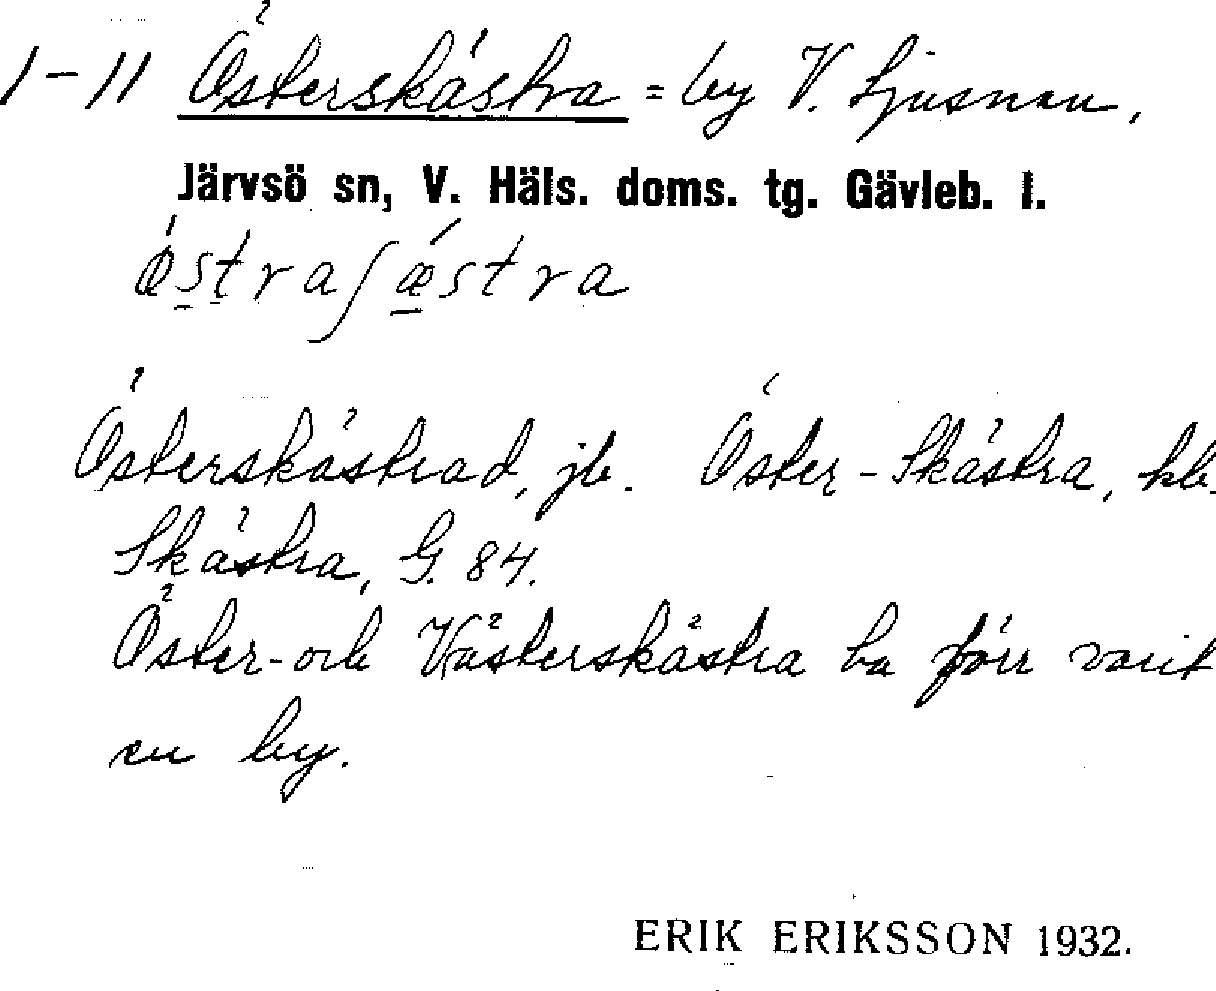 1-11 Österskästra = by V. Ljusnan,
Järvsö sn, V. Häls. doms. tg. Gävleb. l.
östraʃæstra
Österskästrad, jb. Öster-Skästra, kb.
Skästra, G. 84.
Öster- och Västerskästra ha förr varit
en by.
ERIK ERIKSSON 1932.